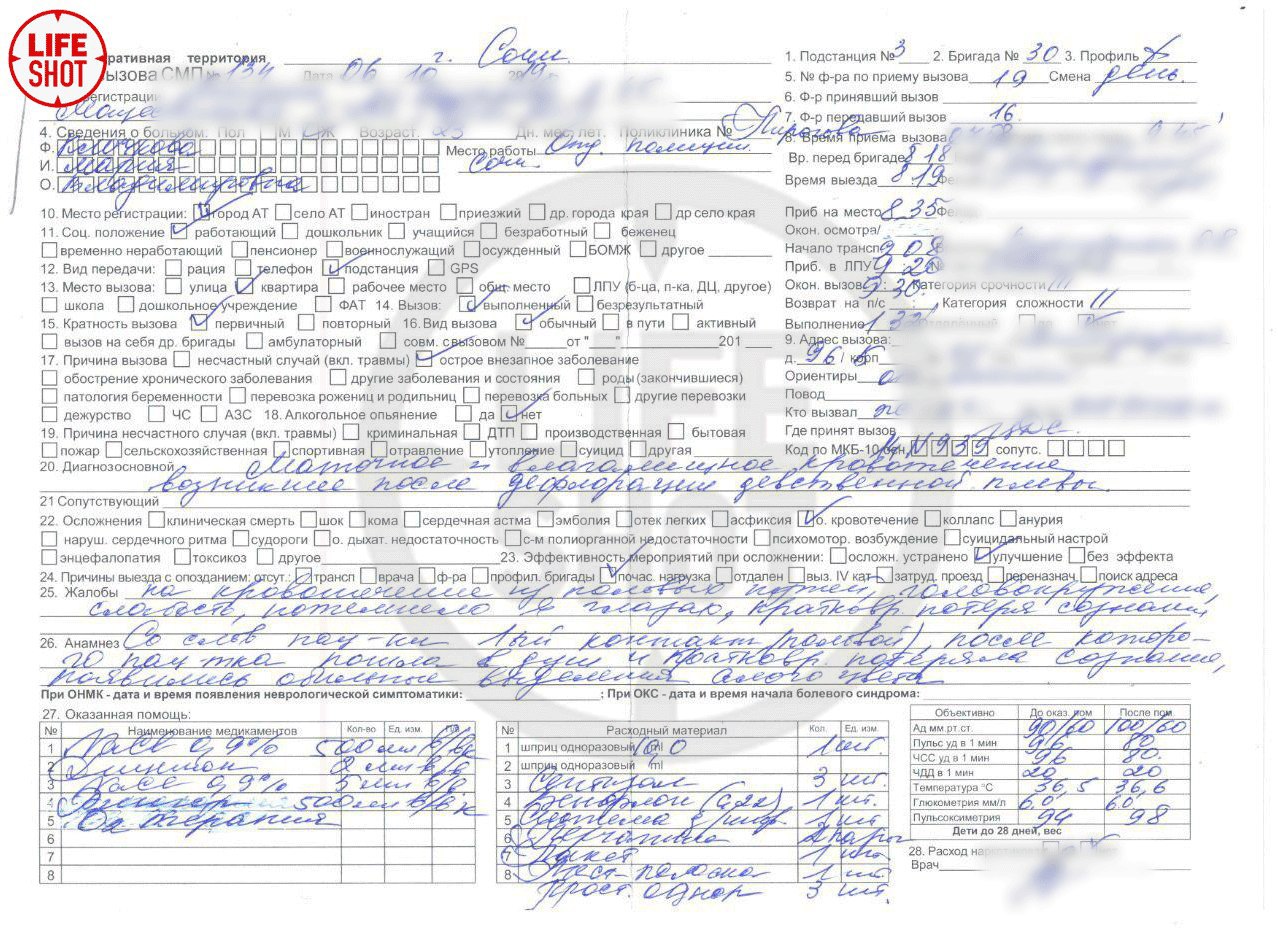 LIFE
SHOT
еративная территория г. Сочи
ызова СМП № 134 Дата 06 10 2019 г.
регистрации
4. Сведения о больном: Пол М Ж Возраст: Дн. мес. лет. Поликлиника № Пирогова
Ф.
И. Мария Место работы Отд. полиции
О. Владимировна Сочи
10. Место регистрации: город АТ село АТ иностран приезжий др. города края др село края
11. Соц. положение работающий дошкольник учащийся безработный беженец
временно неработающий пенсионер военнослужащий осужденный БОМЖ другое
12. Вид передачи: рация телефон подстанция GPS
13. Место вызова: улица квартира рабочее место общ. место ЛПУ (б-ца, п-ка, ДЦ, другое)
школа дошкольное учреждение ФАТ 14. Вызов: выполненный безрезультатный
15. Кратность вызова первичный повторный 16. Вид вызова обычный в пути активный
вызов на себя др. бригады амбулаторный совм. с вызовом № от "___" 201
17. Причина вызова несчастный случай (вкл. травмы) острое внезапное заболевание
обострение хронического заболевания другие заболевания и состояния роды (закончившиеся)
патология беременности перевозка рожениц и родильниц перевозка больных другие перевозки
дежурство ЧС АЗС 18. Алкогольное опьянение да нет
19. Причина несчастного случая (вкл. травмы) криминальная ДТП производственная бытовая
пожар сельскохозяйственная спортивная отравление утопление суицид другая
20. Диагноз основной Маточное и влагалищное кровотечение
возникшее после дефлорации девственной плевы.
21 Сопутствующий
22. Осложнения клиническая смерть шок кома сердечная астма эмболия отек легких асфиксия о. кровотечение коллапс анурия
наруш. сердечного ритма судороги о. дыхат. недостаточность с-м полиорганной недостаточности психомотор. возбуждение суицидальный настрой
энцефалопатия токсикоз другое 23. Эффективность мероприятий при осложнении: осложн. устранено улучшение без эффекта
24. Причины выезда с опозданием: отсут.: трансп врача ф-ра профил. бригады почас. нагрузка отдален выз. IV кат затруд. проезд переназнач. поиск адреса
25. Жалобы на кровотечение из половых путей, головокружение,
слабость, потемнело в глазах, кратковр. потеря сознания,
26. Анамнез Со слов пац-ки 1ый контакт (половой), после которо-
го пац-тка пошла в душ и кратковр. потеряла сознание,
появились обильные выделения алого цвета
При ОНМК - дата и время появления неврологической симптоматики: ; При ОКС - дата и время начала болевого синдрома:
27. Оказанная помощь:
№ Наименование медикаментов Кол-во Ед. изм.
1 NaCl 0,9% 500 мл в/в к
2 2 мл в/в
3 NaCl 0,9% 5 мл в/в
4 500 мл в/в к
5 Ох терапия
6
7
8
№ Расходный материал Кол. Ед. изм.
1 шприц одноразовый 10,0 ml 1 шт.
2 шприц одноразовый ml
3 3 шт.
4 1 шт.
5 Система в/инф. 1 шт.
6 Перчатки пары
7 Пакет 1 шт.
8 Тест-полоска 1 шт.
Прост. однор 3 шт.
1. Подстанция № 3 2. Бригада № 30 3. Профиль
5. № ф-ра по приему вызова 19 Смена день.
6. Ф-р принявший вызов
7. Ф-р передавший вызов 16.
8. Время приема вызова
Вр. перед бригаде 8 18
Время выезда 8 19
Приб на место 8 35
Окон. осмотра/
Начало трансп 9 08
Приб. в ЛПУ 9 20
Окон. вызова 9 30. Категория срочности III
Возврат на п/с Категория сложности II
Выполнение
9. Адрес вызова:
д. 96 / корп 5
Ориентиры
Повод
Кто вызвал
Где принят вызов ЦДС.
Код по МКБ-10 осн. N 9 3 9 сопутс.
Объективно До оказ. пом После пом
Ад мм.рт.ст. 90/60 100/60
Пульс уд в 1 мин 96 80
ЧСС уд в 1 мин 96 80.
ЧДД в 1 мин 20 20
Температура °С 36,5 36,6
Глюкометрия мм/л 6,0 6,0
Пульсоксиметрия 94 98
Дети до 28 дней, вес
28. Расход
Врач
LIFE
SHOT